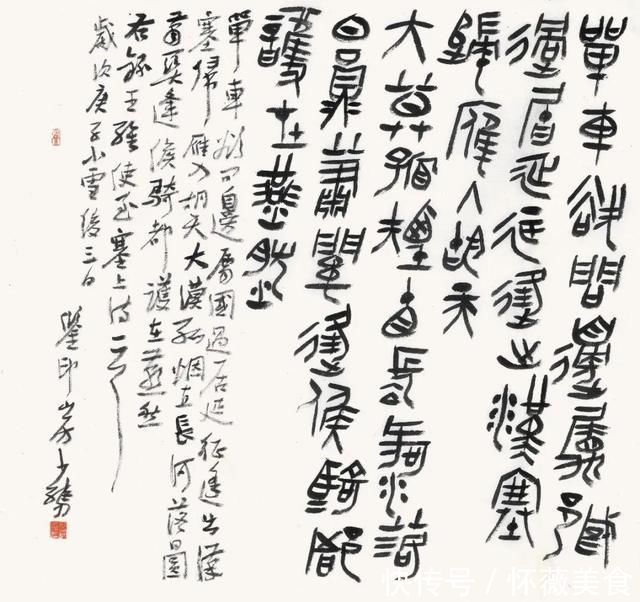 單車欲問邊屬國
過居延征蓬出漢塞
歸雁入胡天
大漠孤煙直長河落
日圓蕭關逢候騎都
護在燕然
單車欲問邊屬國過居延征蓬出漢
塞歸雁入胡天大漠孤烟直長河落日圓
蕭關逢候騎都護在燕然
右録王維使至塞上詩一首
歲次庚子小雪後三日
鑒印山房少孺
快传号 / 怀薇美食